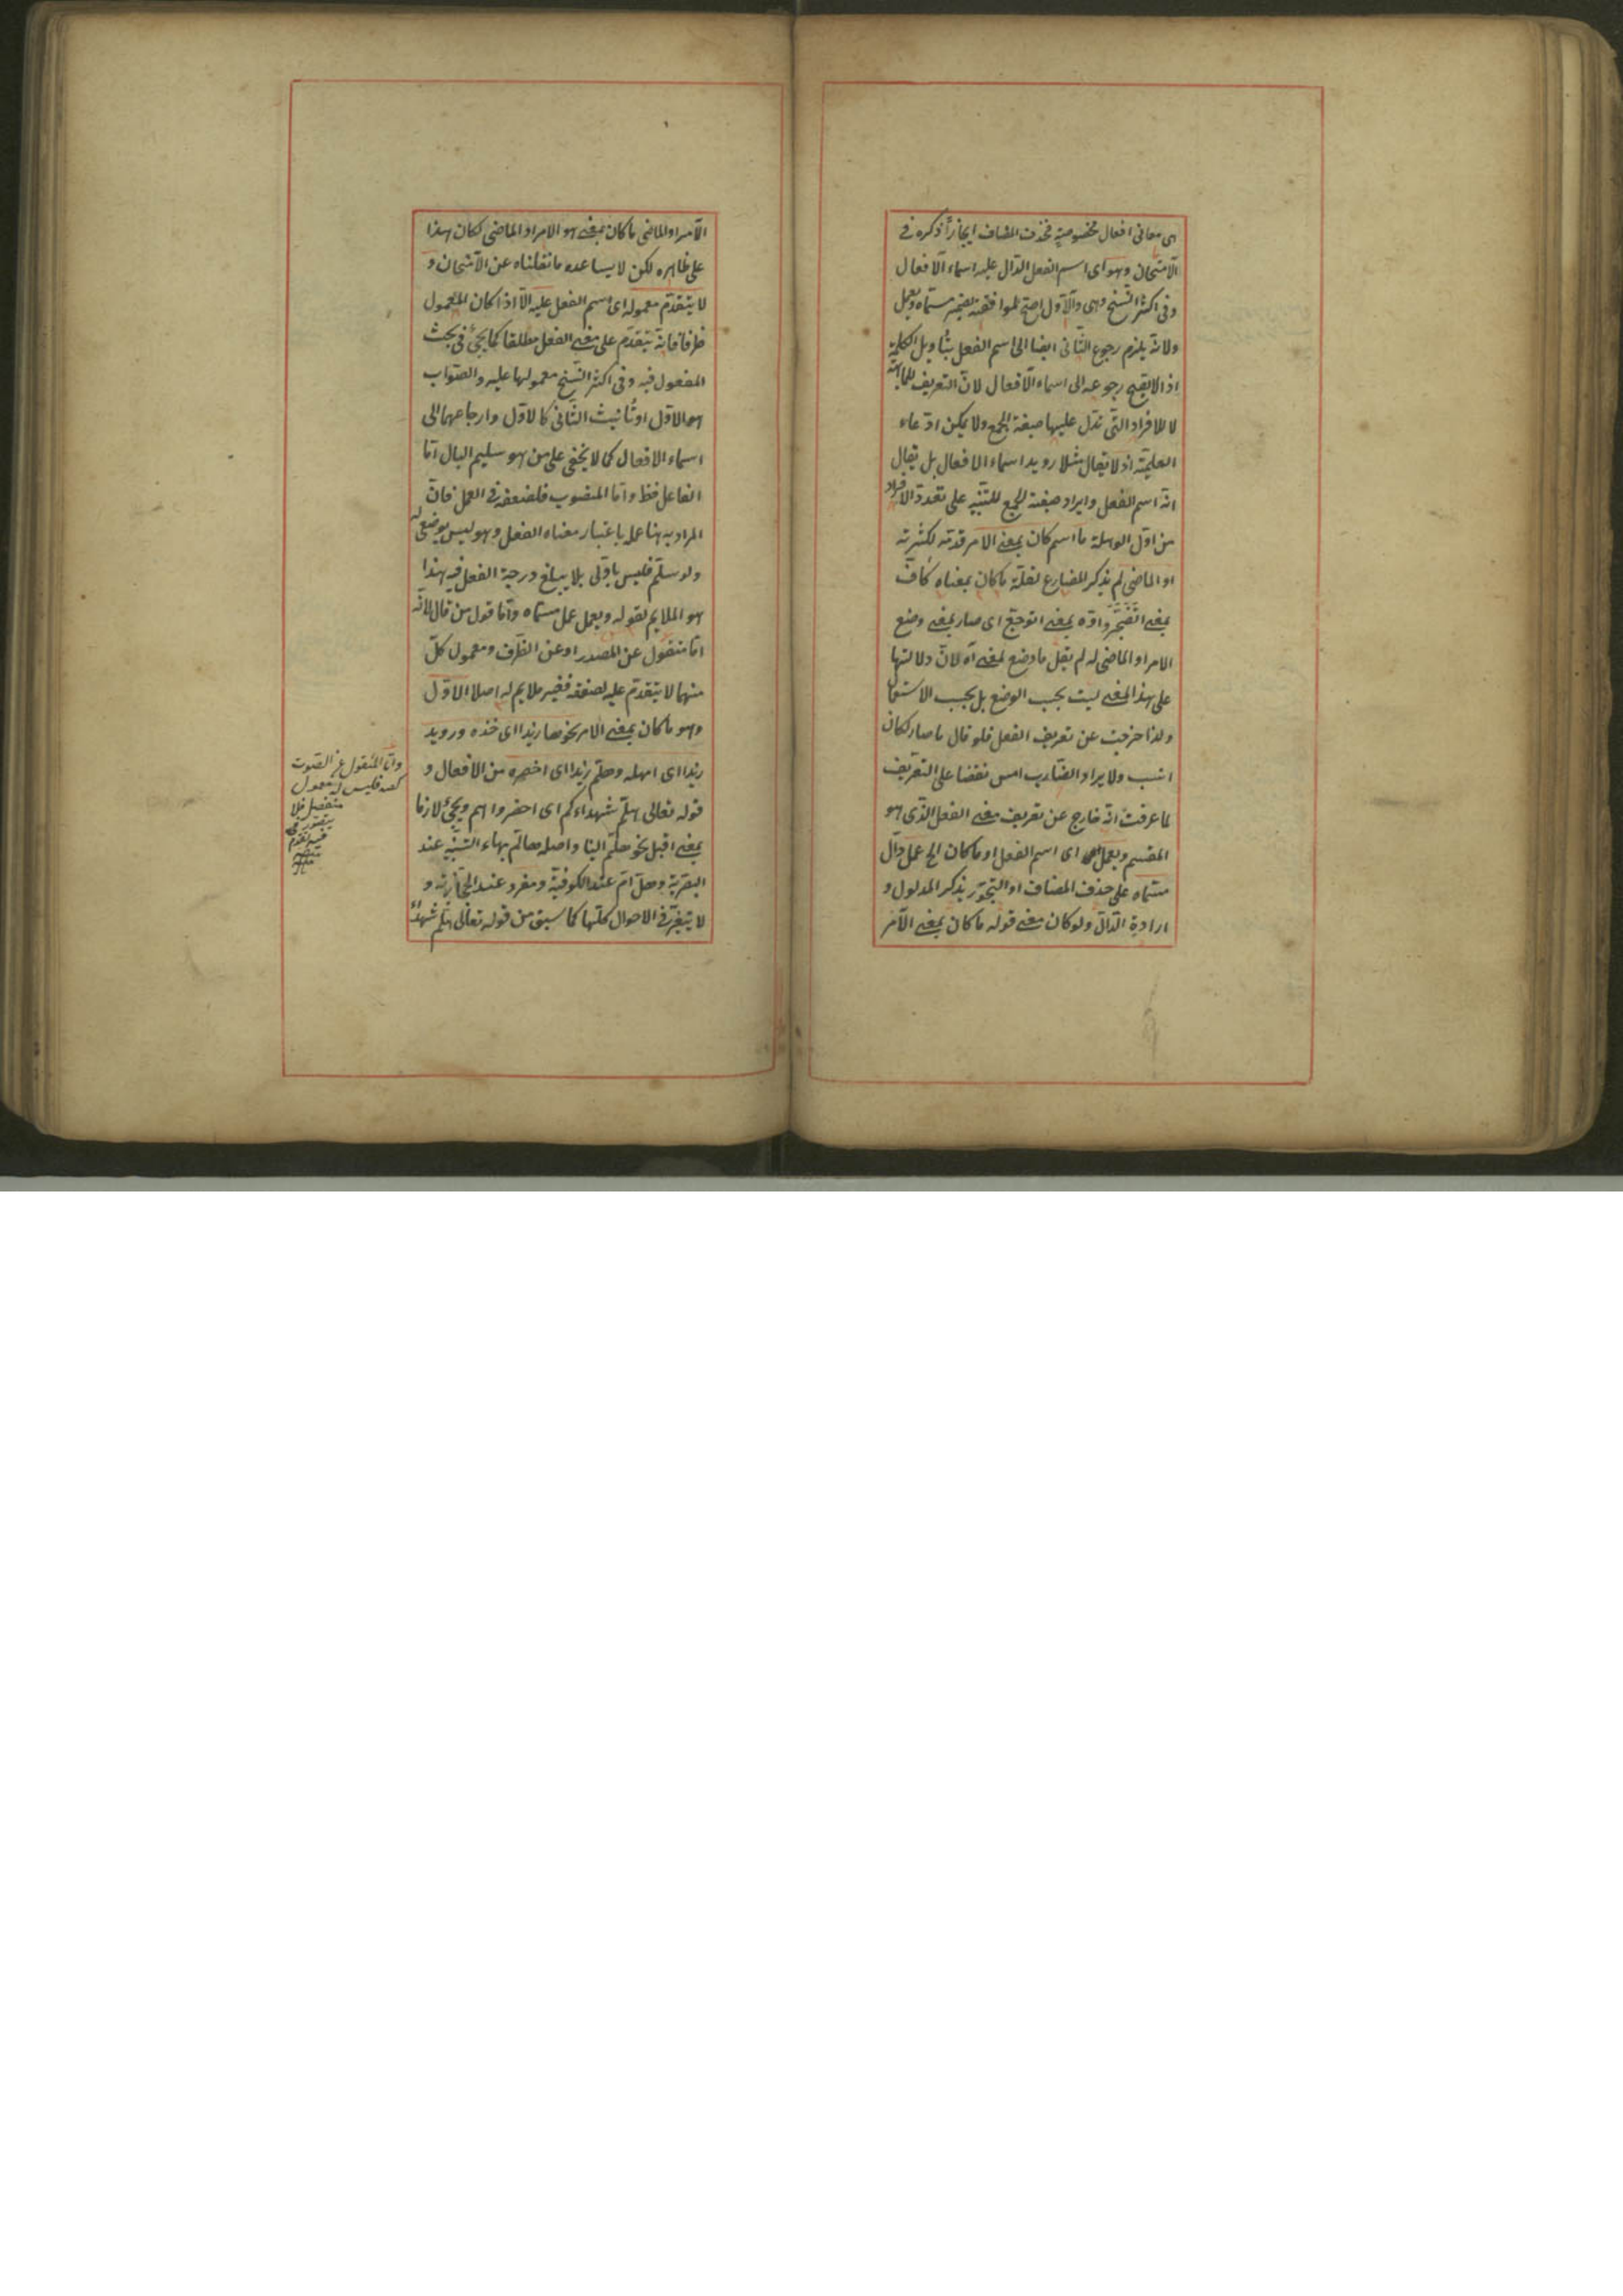 اى معانى افعال مخصوصة فحذف المضاف ايجازا ذكره فى
الامتحان وهو اى اسم الفعل الدال عليه اسماء الافعال
وفى اكثر النسخ وهى والاول اصح لموافقته لضمير مسماه ويعمل
ولانه يلزم رجوع الثانى ايضا الى اسم الفعل بتأويل الكلمة
اذ لا يصح رجوعه الى اسماء الافعال لان التعريف للماهية
لا للافراد التى تدل عليها صيغة الجمع ولا يمكن ادعاء
العلمية اذ لا يقال مثلا رويد اسماء الافعال بل يقال
انه اسم الفعل وايراد صيغة الجمع للتنبيه على تعدد الافراد
من اول الوهلة ما اسم كان بمعنى الامر قدمه لكثرته
او الماضى لم يذكر المضارع لقلة ما كان بمعناه كاف
بمعنى اتضجر واوه بمعنى اتوجع اى صار بمعنى وضع
الامر او الماضى له لم يقل ما وضع لمعنى اه لان دلالتها
على هذا المعنى ليست بحسب الوضع بل بحسب الاستعما
ولذا خرجت عن تعريف الفعل فلو قال ما صار لكان
انسب ولا يراد الضارب امس نقضا على التعريف
لما عرفت انه خارج عن تعريف معنى الفعل الذى هو
المقسم ويعمل اى اسم الفعل او ما كان الخ عمل دال
مسماه على حذف المضاف او التجوز بذكر المدلول و
ارادة الدال ولو كان معنى قوله ما كان بمعنى الامر
الامر او الماضى ما كان بمعنى هو الامر او الماضى لكان هذا
على ظاهره لكن لا يساعده ما نقلناه عن الامتحان و
لا يتقدم معموله اى اسم الفعل عليه الا اذا كان المعمول
ظرفا فانه يتقدم على معنى الفعل مطلقا كما يجئ فى بحث
المفعول فيه وفى اكثر النسخ معمولها عليه والصواب
هو الاول او تأنيث الثانى كالاول وارجاعهما الى
اسماء الافعال كما لا يخفى على من هو سليم البال اما
الفاعل فظ واما المنصوب فلضعفه فى العمل فان
المراد به هنا عمله باعتبار معناه الفعل وهو ليس بوضعى له
ولو سلم فليس باولى بلا يبلغ درجة الفعل فيه هذا
هو الملايم لقوله ويعمل عمل مسماه واما قول من قال لانه
اما منقول عن المصدر او عن الظرف ومعمول كل
منها لا يتقدم عليه لضعفه فغير ملايم له اصلا الاول
وهو ما كان بمعنى الامر نحو ها زيدا اى خذه ورويد
زيدا اى امهله وهلم زيدا اى احضره من الافعال و
قوله تعالى هلم شهداءكم اى احضروا هم ويجئ لازما
بمعنى اقبل نحو هلم الينا واصله ها لم بهاء التنبيه عند
البصرية وهل ام عند الكوفية ومفرد عند الحجازية و
لا يتغير فى الاحوال كلها كما سبق من قوله تعالى هلم شهداء
واما المنقول عن الصوت
كصه فليس له معمول
منفصل فلا
يتصور
فيه تقدم